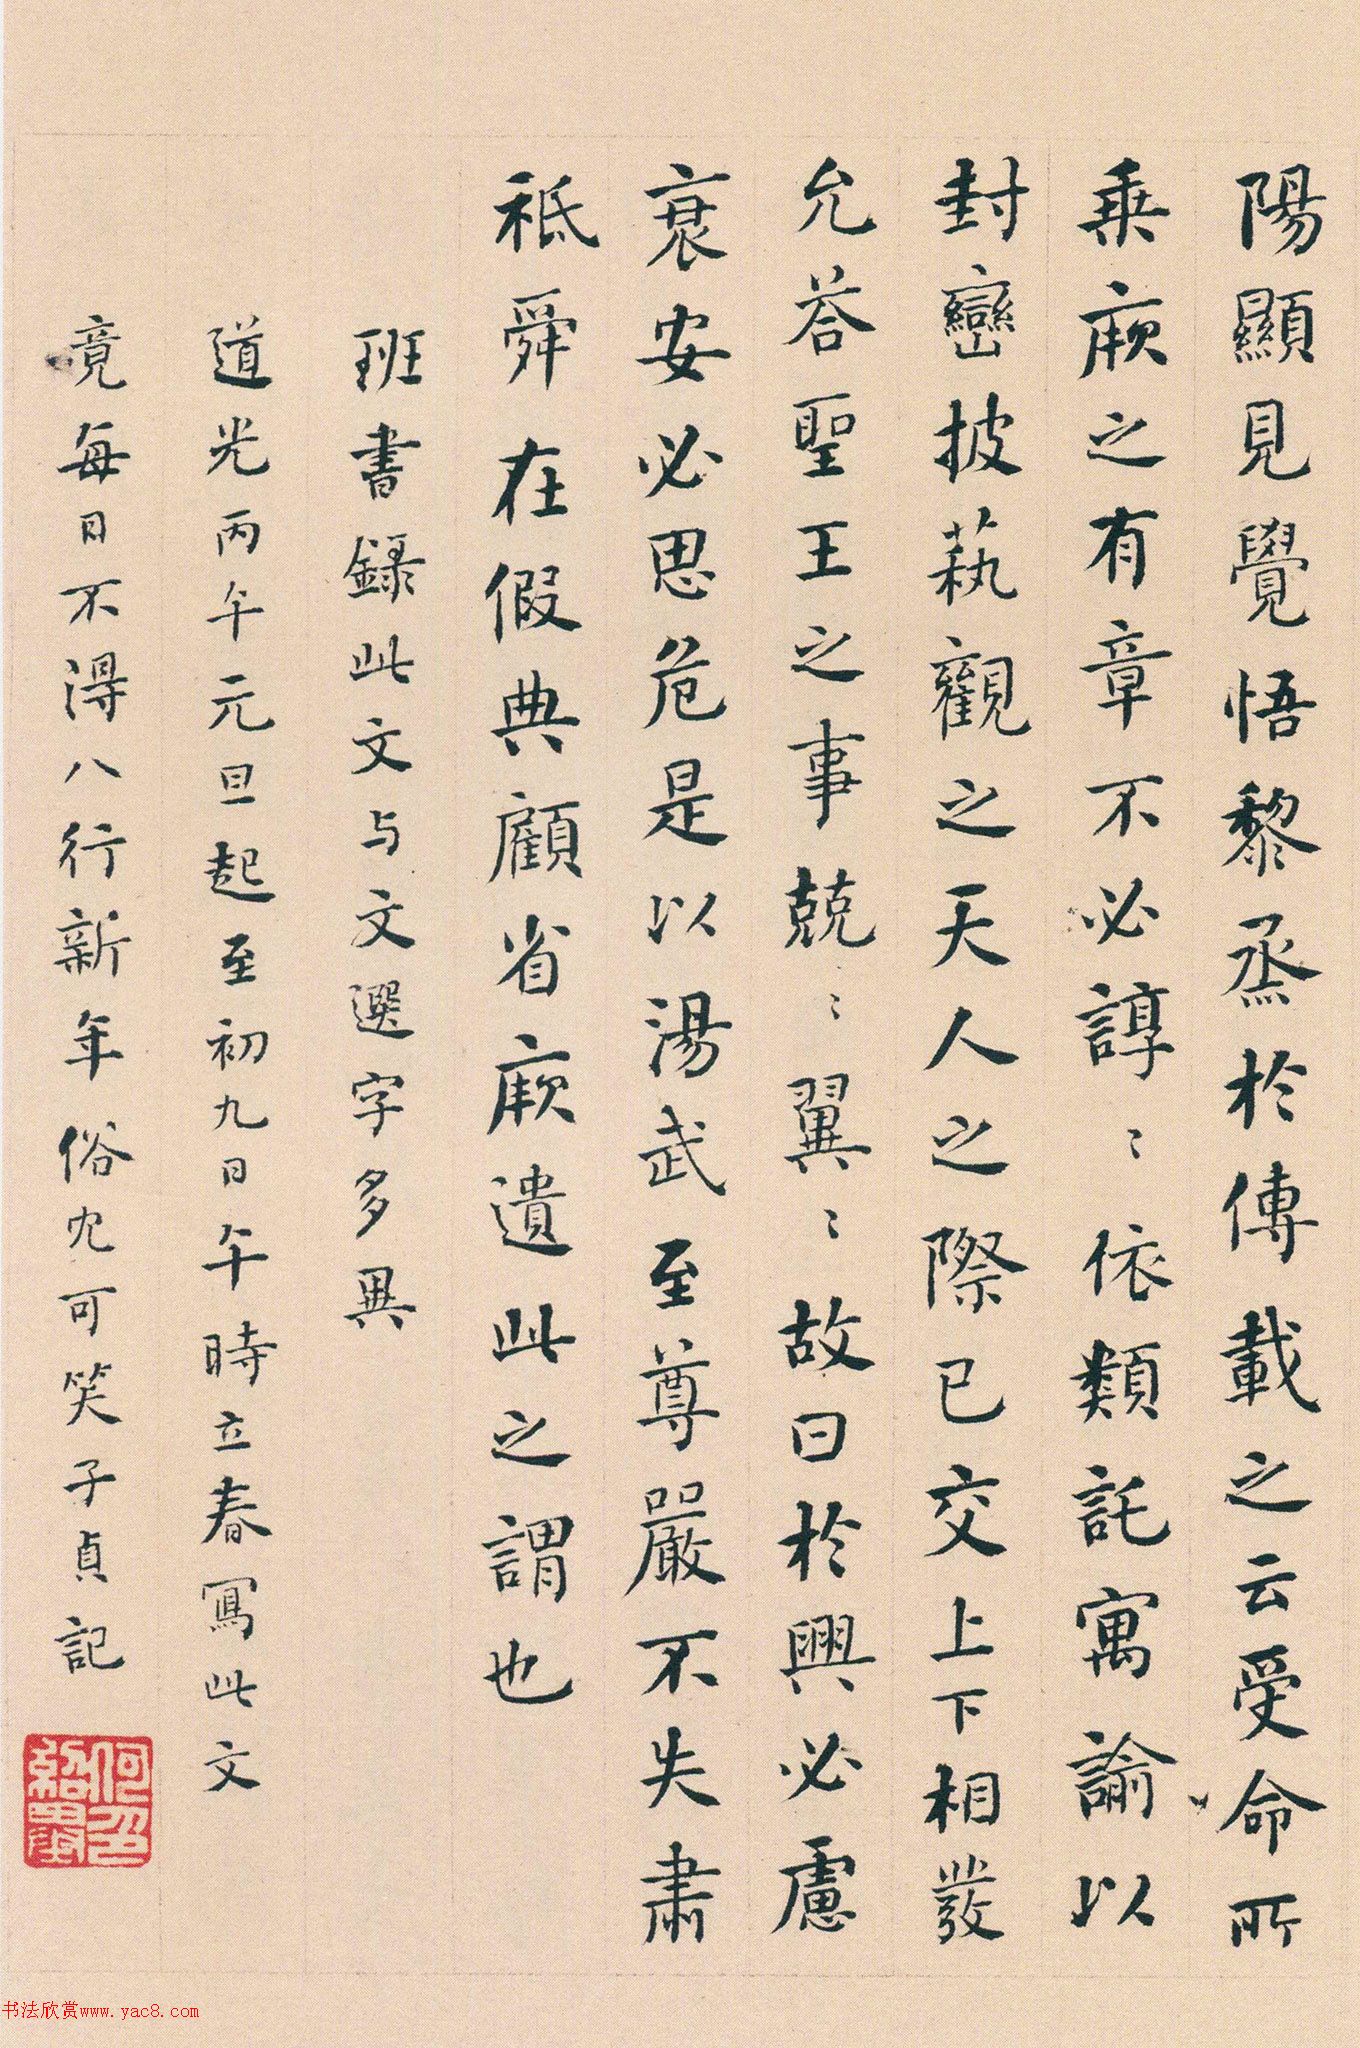 陽顯見覺悟黎烝於傳載之云受命所
乗厥之有章不必諄〻依類託寓諭以
封巒披蓺觀之天人之際已交上下相發
允荅聖王之事兢〻翼〻故曰於興必慮
衰安必思危是以湯武至尊嚴不失肅
祗舜在假典顧省厥遺此之謂也
班書録此文与文選字多異
道光丙午元旦起至初九日午時立春寫此文
竟每日不得八行新年俗冗可笑子貞記
何紹基印
书法欣赏www.yac8.com